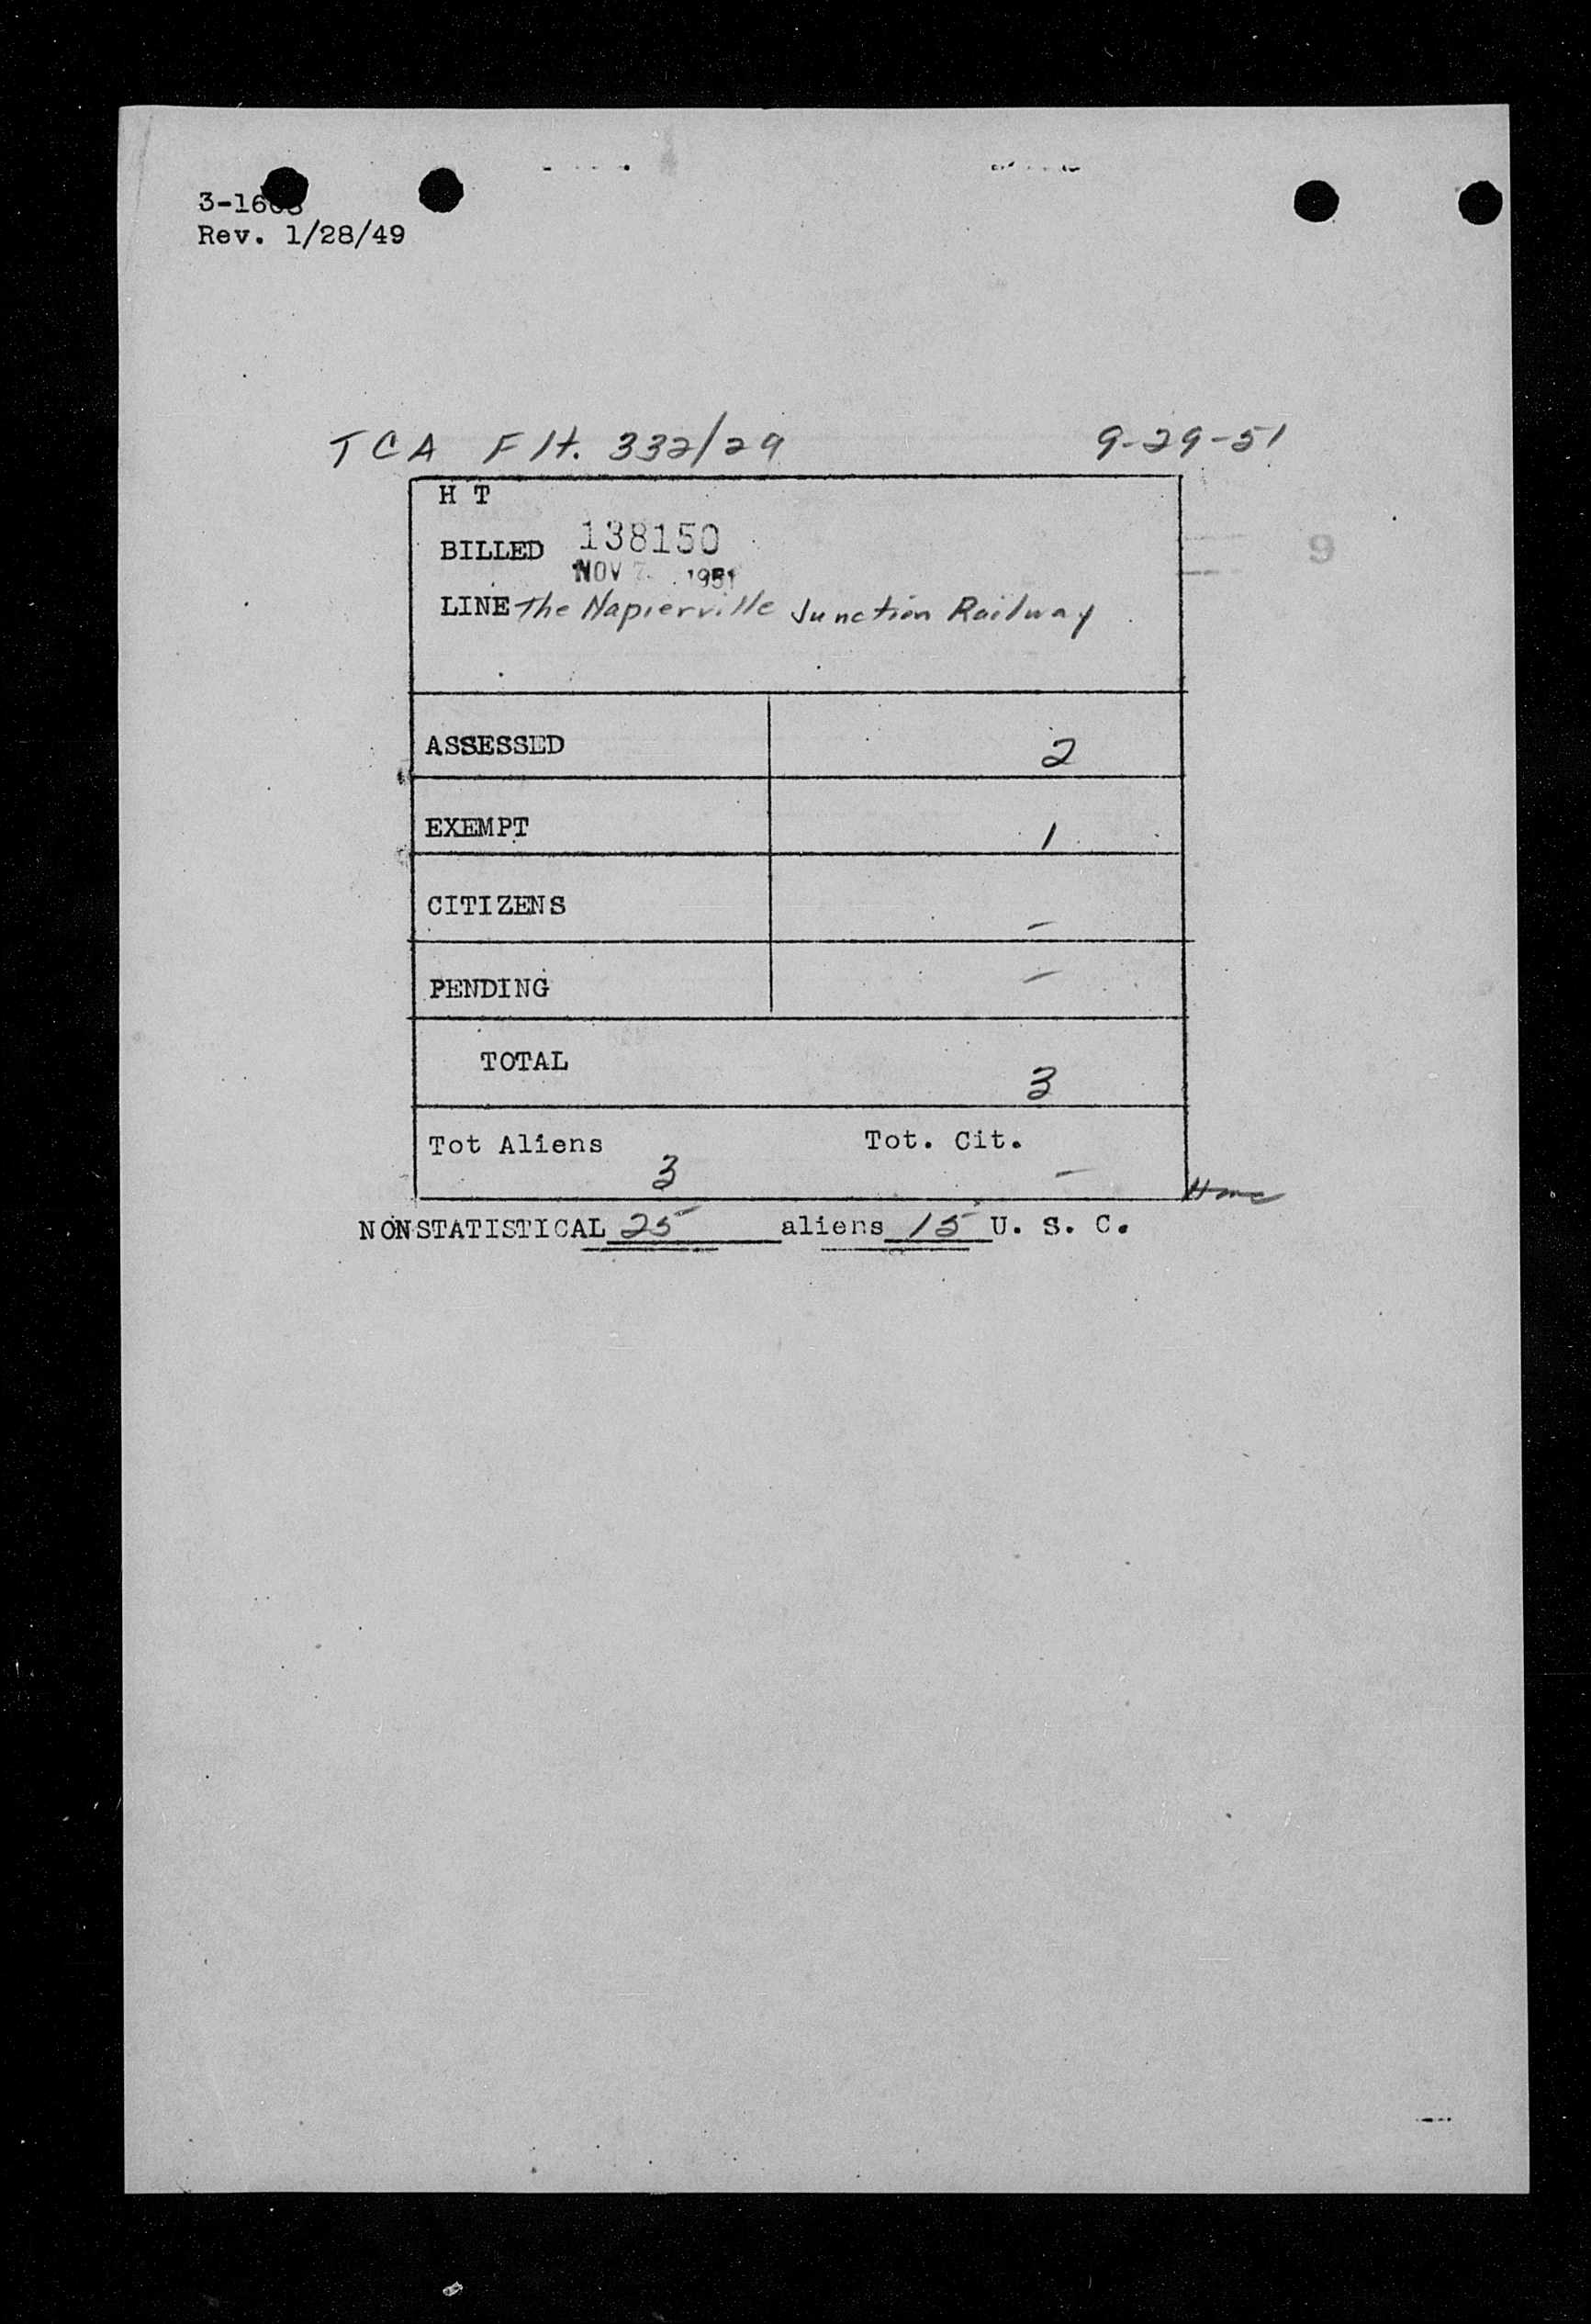 Rev. 1/28/49
TCA Flt. 332/29 9-29-51
H T
BILLED 138150
NOV 7 1951
LINE The Napierville Junction Railway
9
ASSESSED 2
EXEMPT 1
CITIZENS -
PENDING -
TOTAL 3
Tot Aliens 3 Tot. Cit. -
NONSTATISTICAL 25 aliens 15 U. S. C.